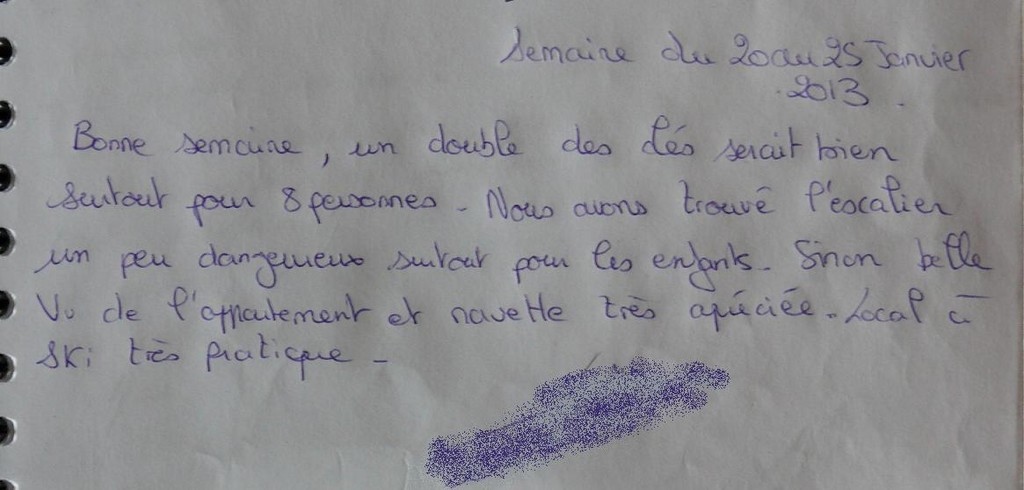 Semaine du 20 au 25 Janvier
2013.
Bonne semaine, un double des clés serait bien
surtout pour 8 personnes - Nous avons trouvé l'escalier
un peu dangereux surtout pour les enfants - Sinon belle
Vu de l'appartement et navette très apréciée - Local à
ski très pratique -